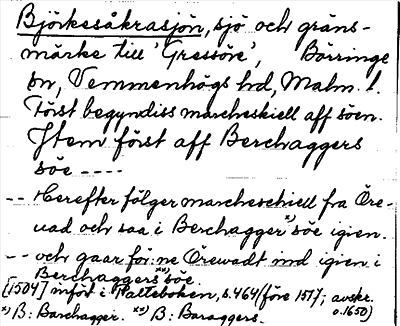 Björkesåkrasjön, sjö och gräns-
märke till 'Gressöre', Börringe
sn, Vemmenhögs hd, Malm. l.
Först begyndiss marcheskiell aff söen.
Item först aff Berchaggers
söe ----
-- Herefter fölger marcheschiell fra Öre-
uad och saa i Berchagger*) söe igien.
-- och gaar för:ne Örewadt ind igien i
Berchaggers**) söe.
[1504] inför i Palteboken, s. 464 (före 1517; avskr.
o. 1650)
*) B: Barchagger. **) B: Baraggers.